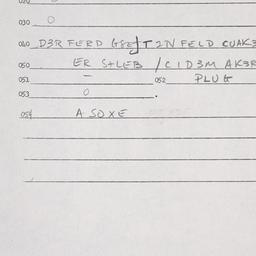 030 O
040 D3R FERD GSEJT 2N FELD CUAK3
050 ER S+LEB / C I D3M AK3R
051 — 052 PLUG
053 O .
054 A SOXE